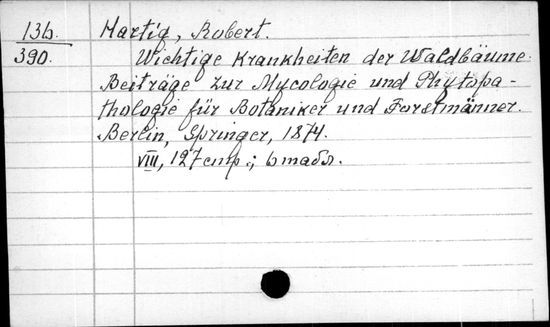 13b. Hartig, Robert.
390. Wichtige Krankheiten der Waldbäume.
Beiträge zur Mycologie und Phytopa-
thologie für Botaniker und Forstmänner.
Berlin, Springer, 1874.
VIII, 127 стр.; 6 табл.